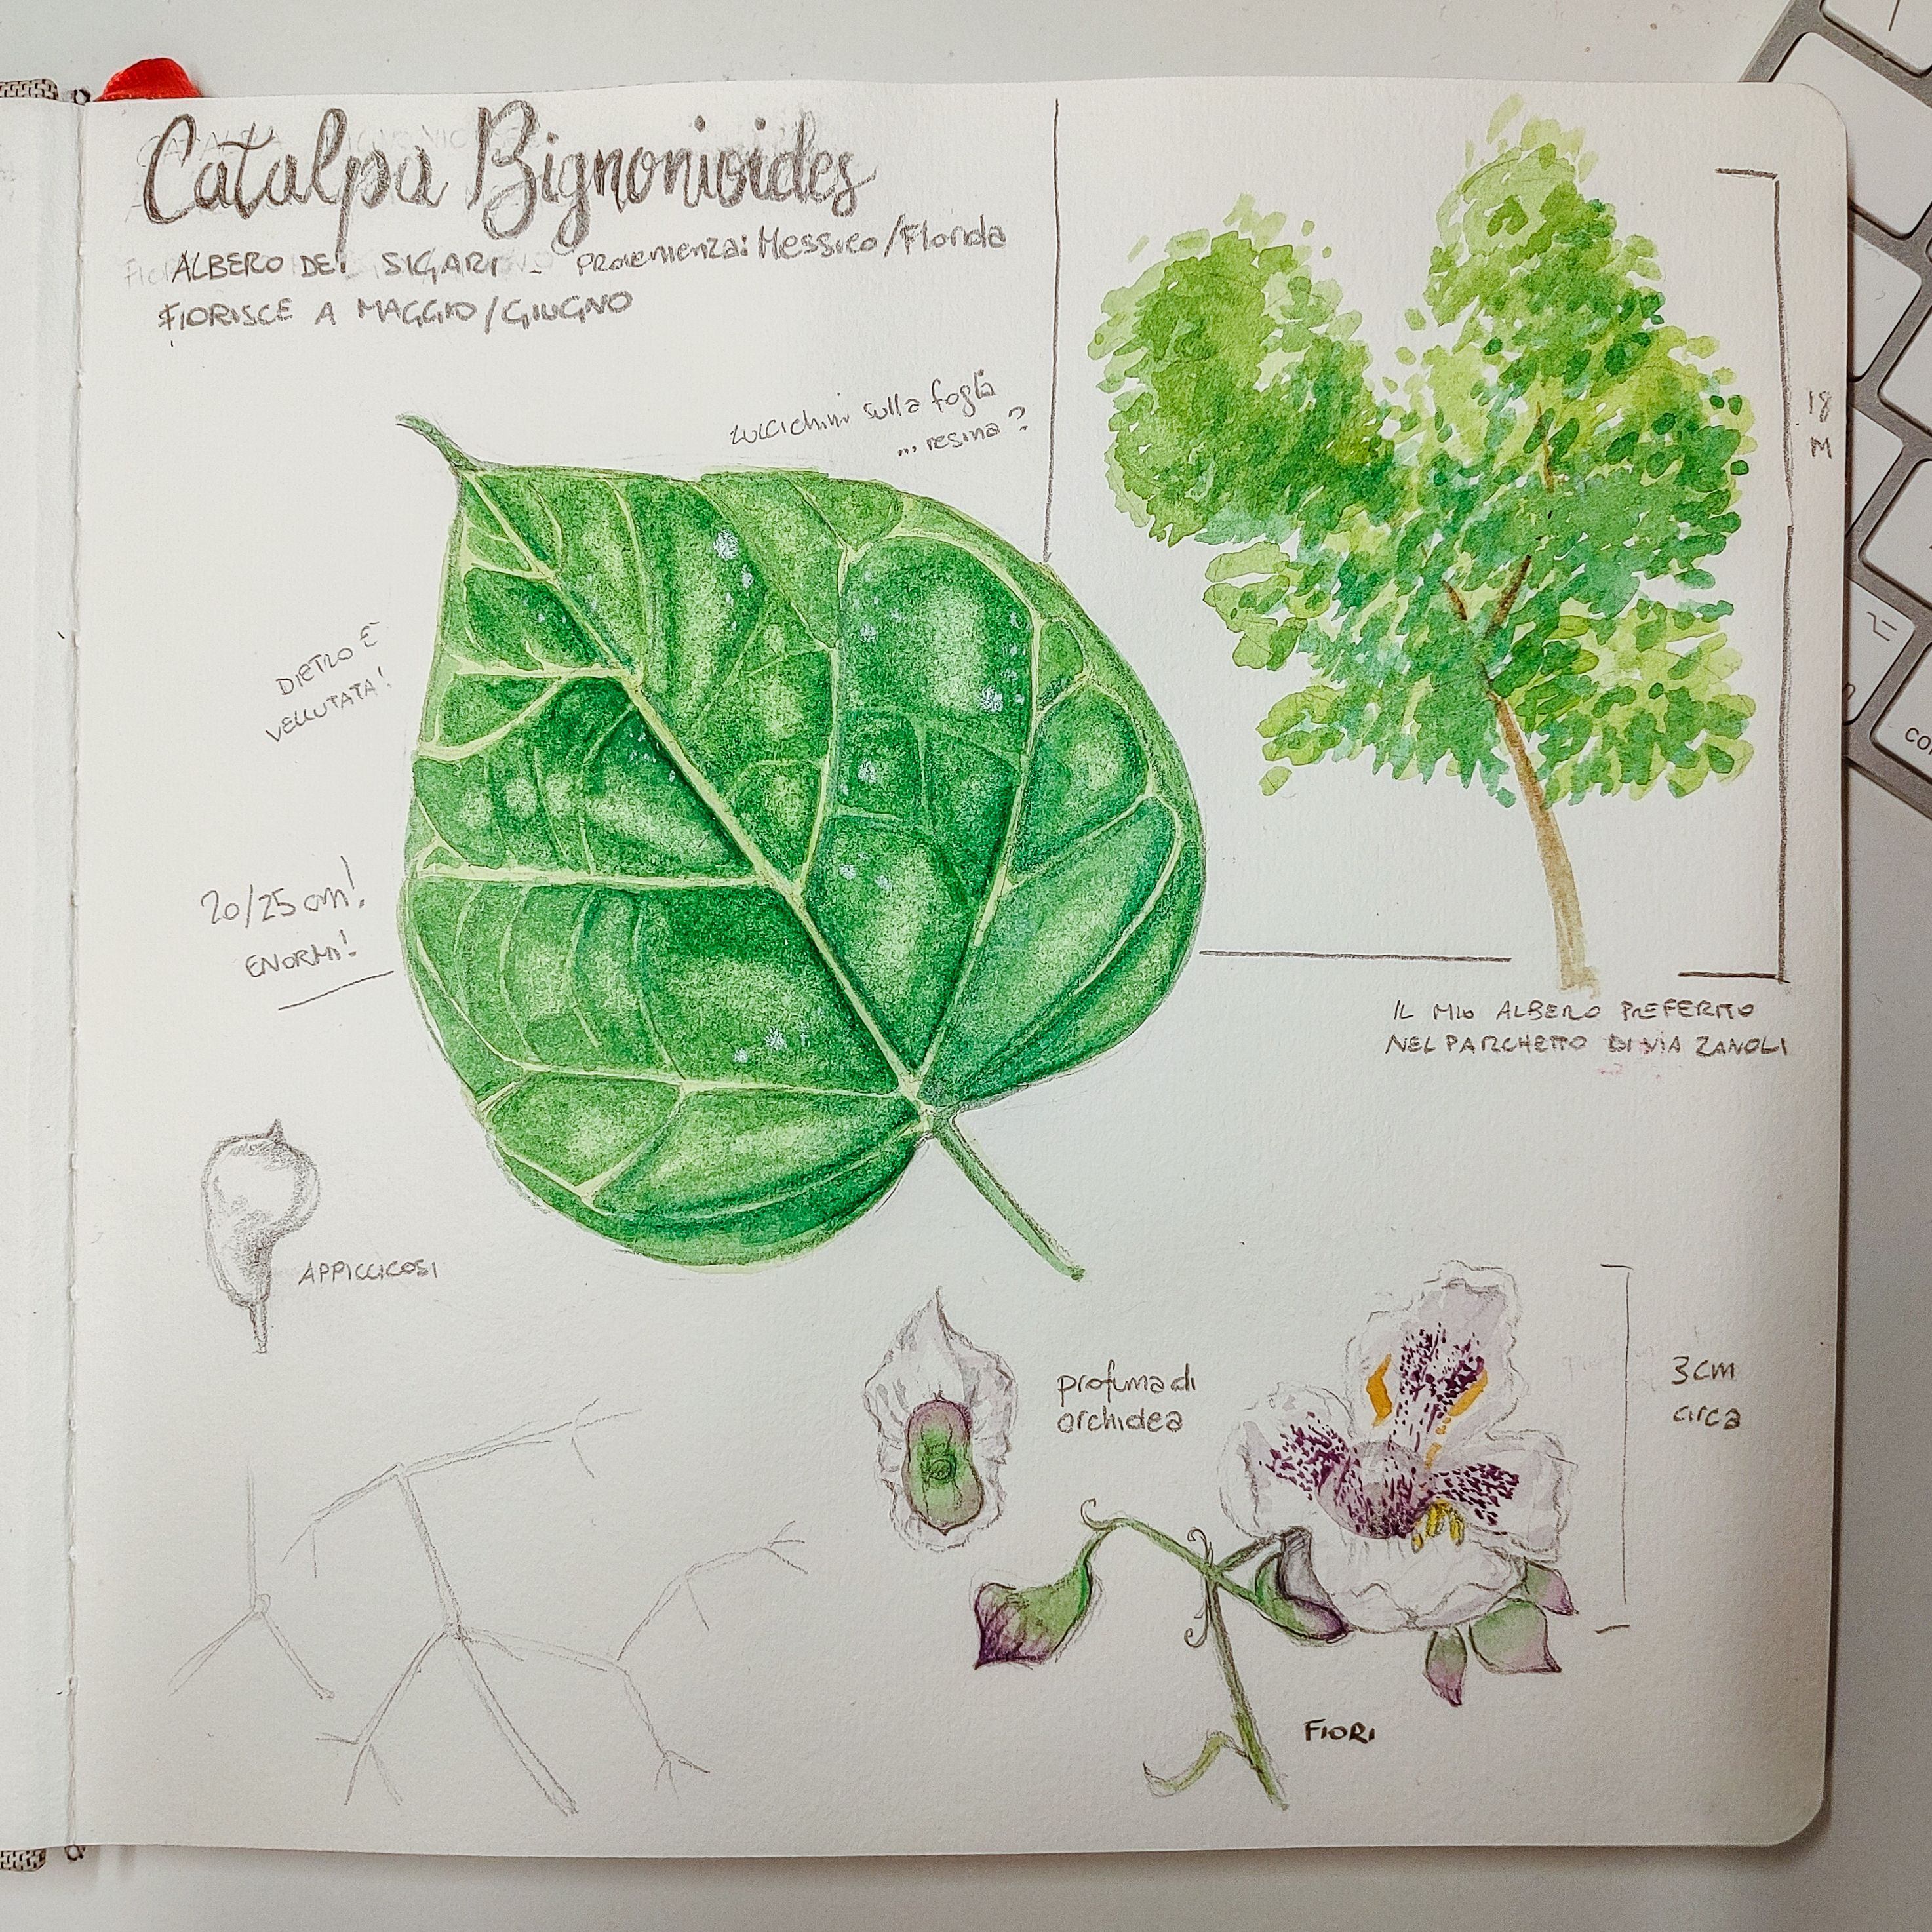 Catalpa Bignonioides
ALBERO DEI SIGARI - PROVENIENZA: Messico/Florida
FIORISCE A MAGGIO/GIUGNO
luccichini sulla foglia
... resina?
18
M
DIETRO È
VELLUTATA!
20/25 cm!
ENORMI!
IL MIO ALBERO PREFERITO
NEL PARCHETTO DI VIA ZANOLI
APPICCICOSI
profuma di
orchidea
3 cm
circa
FIORI